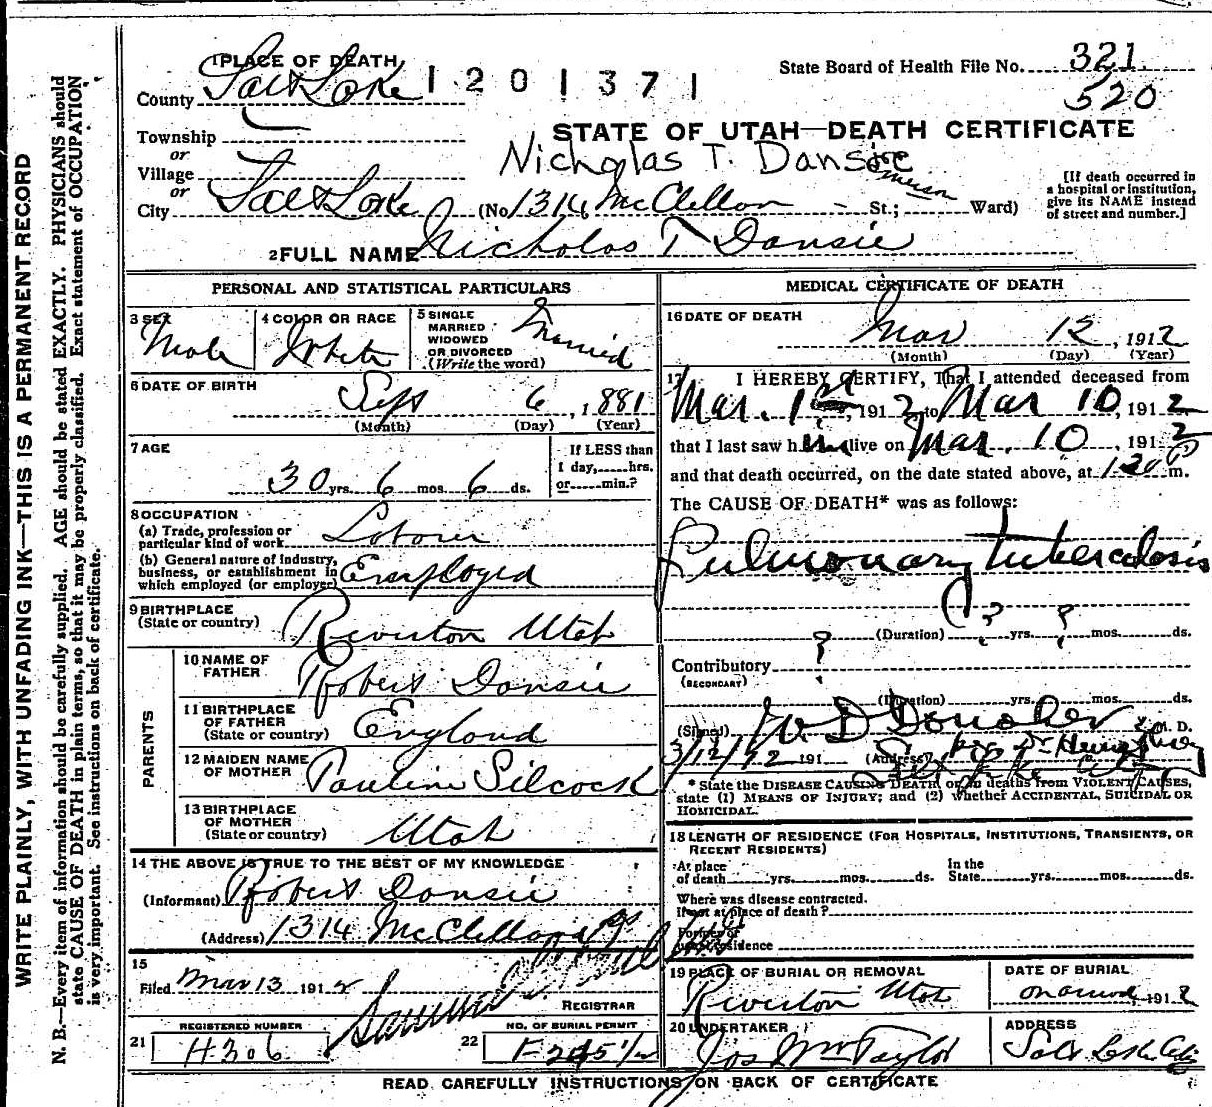 1 PLACE OF DEATH
1201371
State Board of Health File No. 321
520
County Salt Lake
Township
or
Village
or
City Salt Lake
STATE OF UTAH—DEATH CERTIFICATE
Nicholas T. Dansie
(No. 1314 McClellan St.; Ward)
[If death occurred in
a hospital or institution,
give its NAME instead
of street and number.]
2 FULL NAME Nicholas T Dansie
PERSONAL AND STATISTICAL PARTICULARS
3 SEX Male
4 COLOR OR RACE White
5 SINGLE
MARRIED
WIDOWED
OR DIVORCED
(Write the word) Married
6 DATE OF BIRTH
Sept 6, 1881
(Month) (Day) (Year)
7 AGE
30 yrs. 6 mos. 6 ds.
If LESS than
1 day, hrs.
or min.?
8 OCCUPATION
(a) Trade, profession or
particular kind of work Laborer
(b) General nature of industry,
business, or establishment in
which employed (or employer) Employed
9 BIRTHPLACE
(State or country) Riverton Utah
PARENTS
10 NAME OF
FATHER Robert Dansie
11 BIRTHPLACE
OF FATHER
(State or country) England
12 MAIDEN NAME
OF MOTHER Pauline Silcock
13 BIRTHPLACE
OF MOTHER
(State or country) Utah
14 THE ABOVE IS TRUE TO THE BEST OF MY KNOWLEDGE
(Informant) Robert Dansie
(Address) 1314 McClellan
15
Filed Mar 13 1912
REGISTRAR
21 REGISTERED NUMBER
H306
22 NO. OF BURIAL PERMIT
MEDICAL CERTIFICATE OF DEATH
16 DATE OF DEATH
Mar 12, 1912
(Month) (Day) (Year)
17 I HEREBY CERTIFY, That I attended deceased from
Mar. 1st, 1912 to Mar 10, 1912
that I last saw him alive on Mar. 10, 1912
and that death occurred, on the date stated above, at 1:20 P m.
The CAUSE OF DEATH* was as follows:
Pulmonary tuberculosis
(Duration) ? yrs. ? mos. ds.
Contributory ?
(SECONDARY)
(Duration) yrs. mos. ds.
(Signed) M. D.
3/12/12 191 (Address) Salt Lake City
* State the DISEASE CAUSING DEATH or in deaths from VIOLENT CAUSES,
state (1) MEANS OF INJURY; and (2) whether ACCIDENTAL, SUICIDAL OR
HOMICIDAL.
18 LENGTH OF RESIDENCE (FOR HOSPITALS, INSTITUTIONS, TRANSIENTS, OR
RECENT RESIDENTS)
At place
of death yrs. mos. ds.
In the
State yrs. mos. ds.
Where was disease contracted.
If not at place of death?
Former or
usual residence
19 PLACE OF BURIAL OR REMOVAL
Riverton Utah
DATE OF BURIAL
1912
20 UNDERTAKER
Jos Wm Taylor
ADDRESS
Salt Lake City
READ CAREFULLY INSTRUCTIONS ON BACK OF CERTIFICATE
WRITE PLAINLY, WITH UNFADING INK—THIS IS A PERMANENT RECORD
N. B.—Every item of information should be carefully supplied. AGE should be stated EXACTLY. PHYSICIANS should
state CAUSE OF DEATH in plain terms, so that it may be properly classified. Exact statement of OCCUPATION
is very important. See instructions on back of certificate.